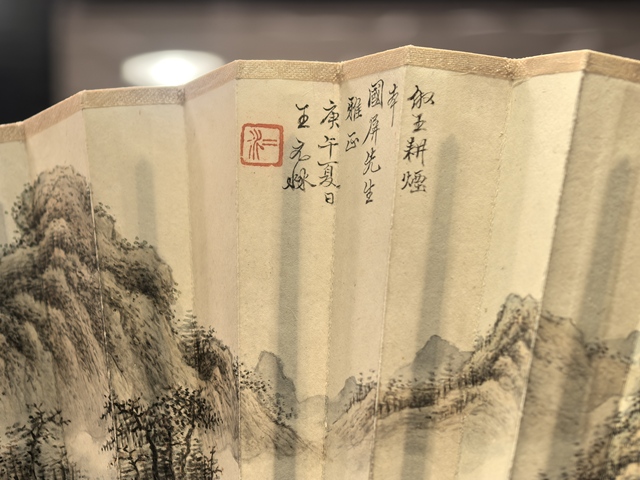 倣王耕煙
本
國屏先生
雅正
庚午夏日
王元